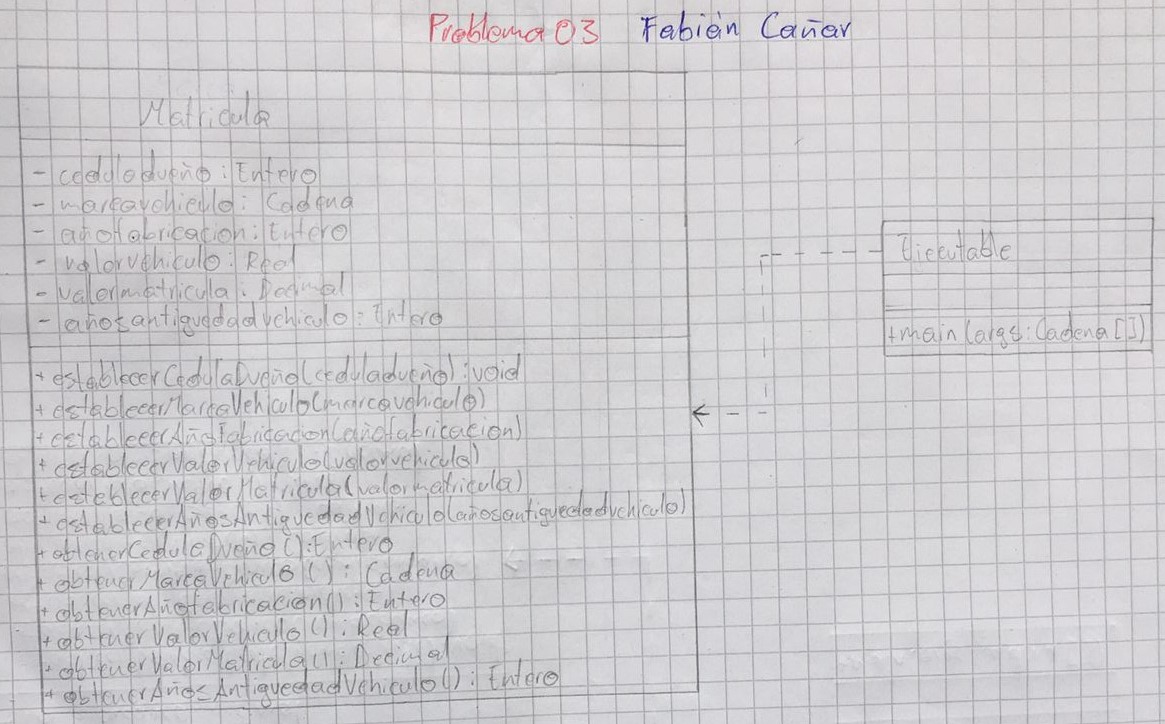 Problema 03 Fabián Cañar
Matricula
- ceduladueño : Entero
- marcavehiculo : Cadena
- añofabricacion : Entero
- valorvehiculo : Real
- valormatricula : Decimal
- añosantiguedadvehiculo : Entero
+ establecerCedulaDueño(ceduladueño) : void
+ establecerMarcaVehiculo(marcavehiculo)
+ establecerAñoFabricacion(añofabricacion)
+ establecerValorVehiculo(valorvehiculo)
+ establecerValorMatricula(valormatricula)
+ establecerAñosAntiguedadVehiculo(añosantiguedadvehiculo)
+ obtenerCedulaDueño() : Entero
+ obtenerMarcaVehiculo() : Cadena
+ obtenerAñofabricacion() : Entero
+ obtenerValorVehiculo() : Real
+ obtenerValorMatricula() : Decimal
+ obtenerAñosAntiguedadVehiculo() : Entero
Ejecutable
+main(args : Cadena[])